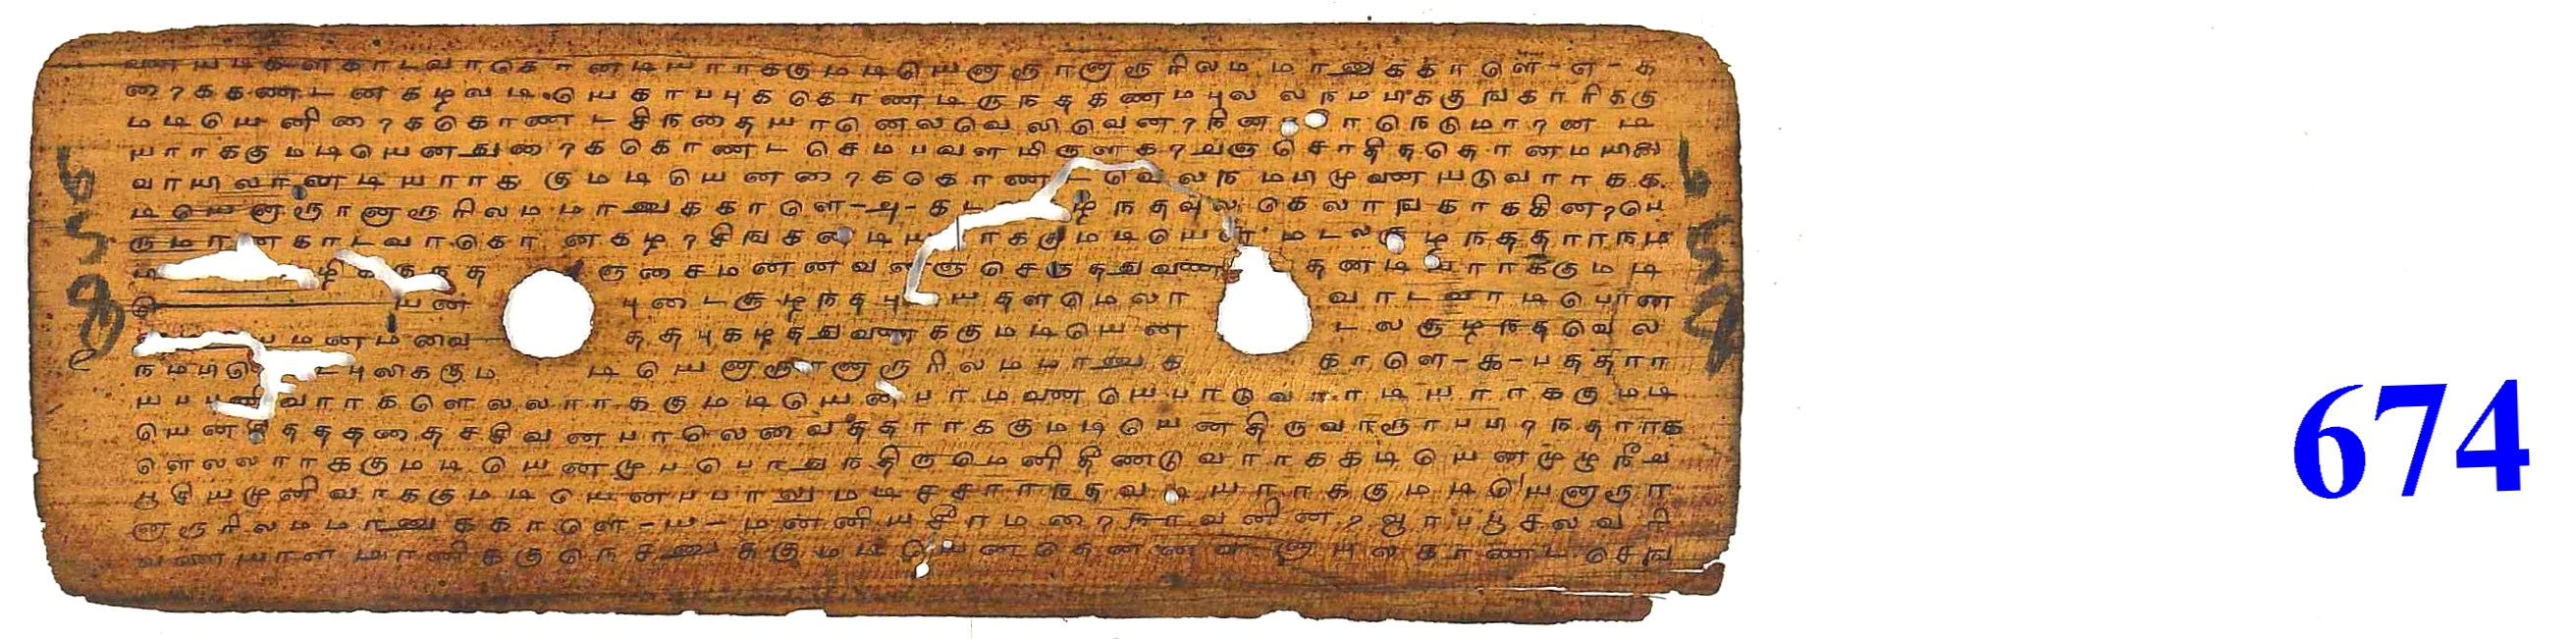 வணயடிகளகாடவரகொனடியாரககுமடியெனாரூரனாரூரிலமமானுககாளெ-எ-க
றைககணடனகழலடியெகாபபுககொணடிருநதகணமபுலலநமபிககுஙகாரிககு
மடியெனிறைககொணடசிநதையானெலவெலிவெனறநின ர நெடுமாறனடி
யாரககுமடியெனதுறைககொணடசெமபவளமிருளகறறுஞசொதிததொனமயிலை
வாயிலானடியாரககுமடியெனறைககொணடவெலநமபிமுனையடுவாரகக
டியெனாரூரனாரூரிலமமானுககாளெ-அ-கட ழநதவுலகெலாஙகாககினறபெ
ருமானகாடவரகொனகழறசிஙகனடியாரககுமடியென மடலசூழநததாரநம
ழிககுநத ஞசைமனனவனாஞசெருததுணை தனடியாரககுமடி
யென புடைசூழநதபு யதளமெலர வாடவாடிபொன
மனமவை ததபுகழததுணைககுமடியென டலசூழநதவெல
நமபிகொடபுலிககும டியெனாரூரனாரூரிலமமானுக காளெ-௯-பததரா
யபபணிவாரகளெலலாரககுமடியெனபரமனையெபாடுவாரடியாரககுமடி
யெனசிததததைசசிவனபாலெவைததாரககுமடியெனதிருவாரூரபபிறநதாரக
ளெலலாரககுமடியெனமுபபொதுநதிருமெனிதீணடுவாரககடியெனமுழுநீற
பூசியமுனிவரககுமடியெனபபாலுமடிசசாரநதவடியாரககுமடியெனாரூர
னாரூரிலமமானுககாளெ-ய-மனனியசீரமறைநாவனினறவூரபபூசலவரி
வளையாளமானிககுநெசனுககுமடியெனதெனனவனாயுலகாணடசெங
674